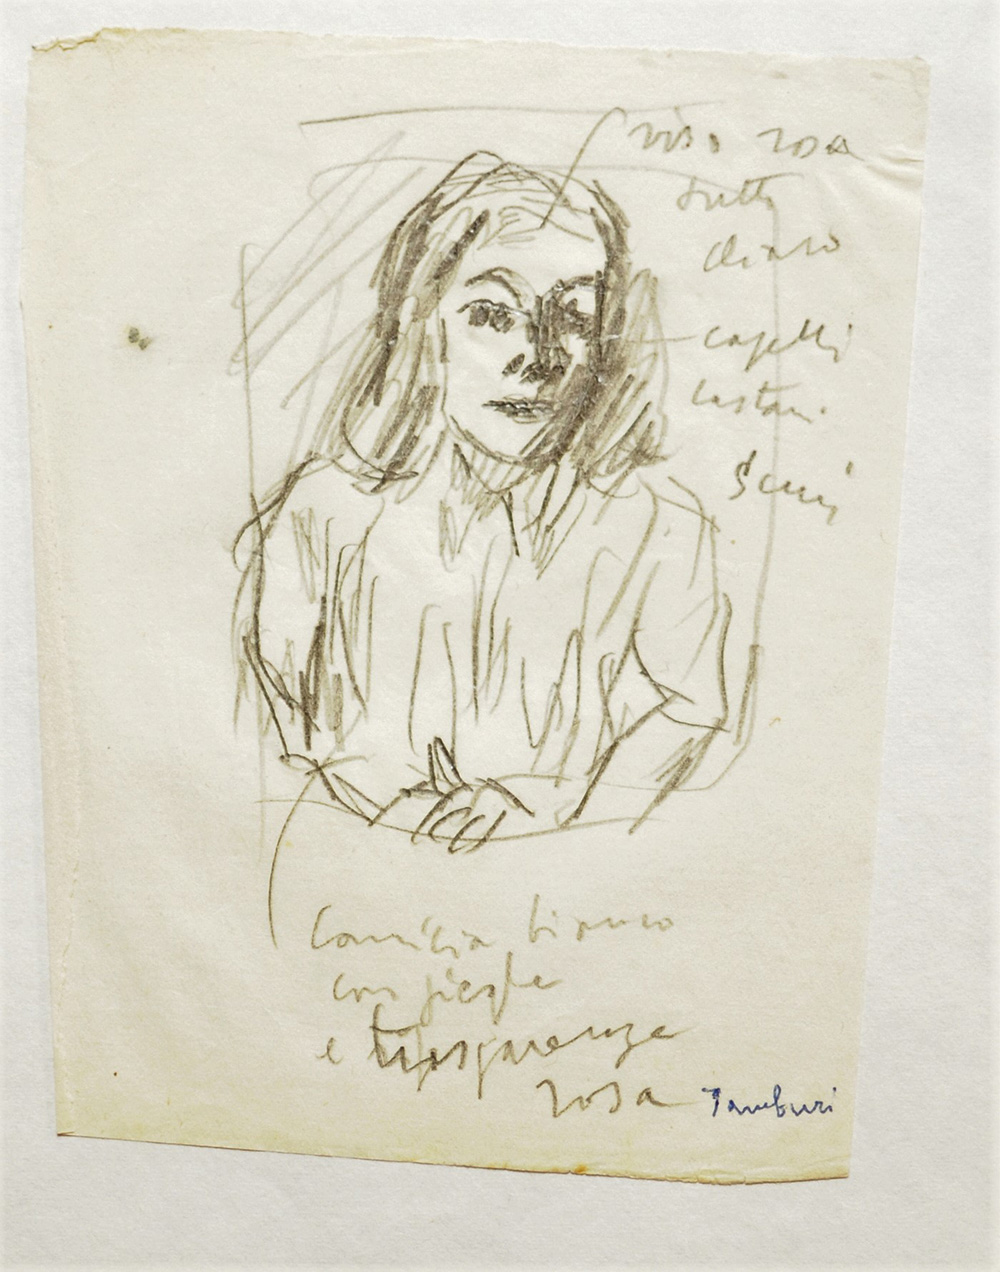 viso rosa
tutto
chiaro
capelli
castani
scuri
Camicia bianca
con pieghe
e trasparenze
rosa Tamburi